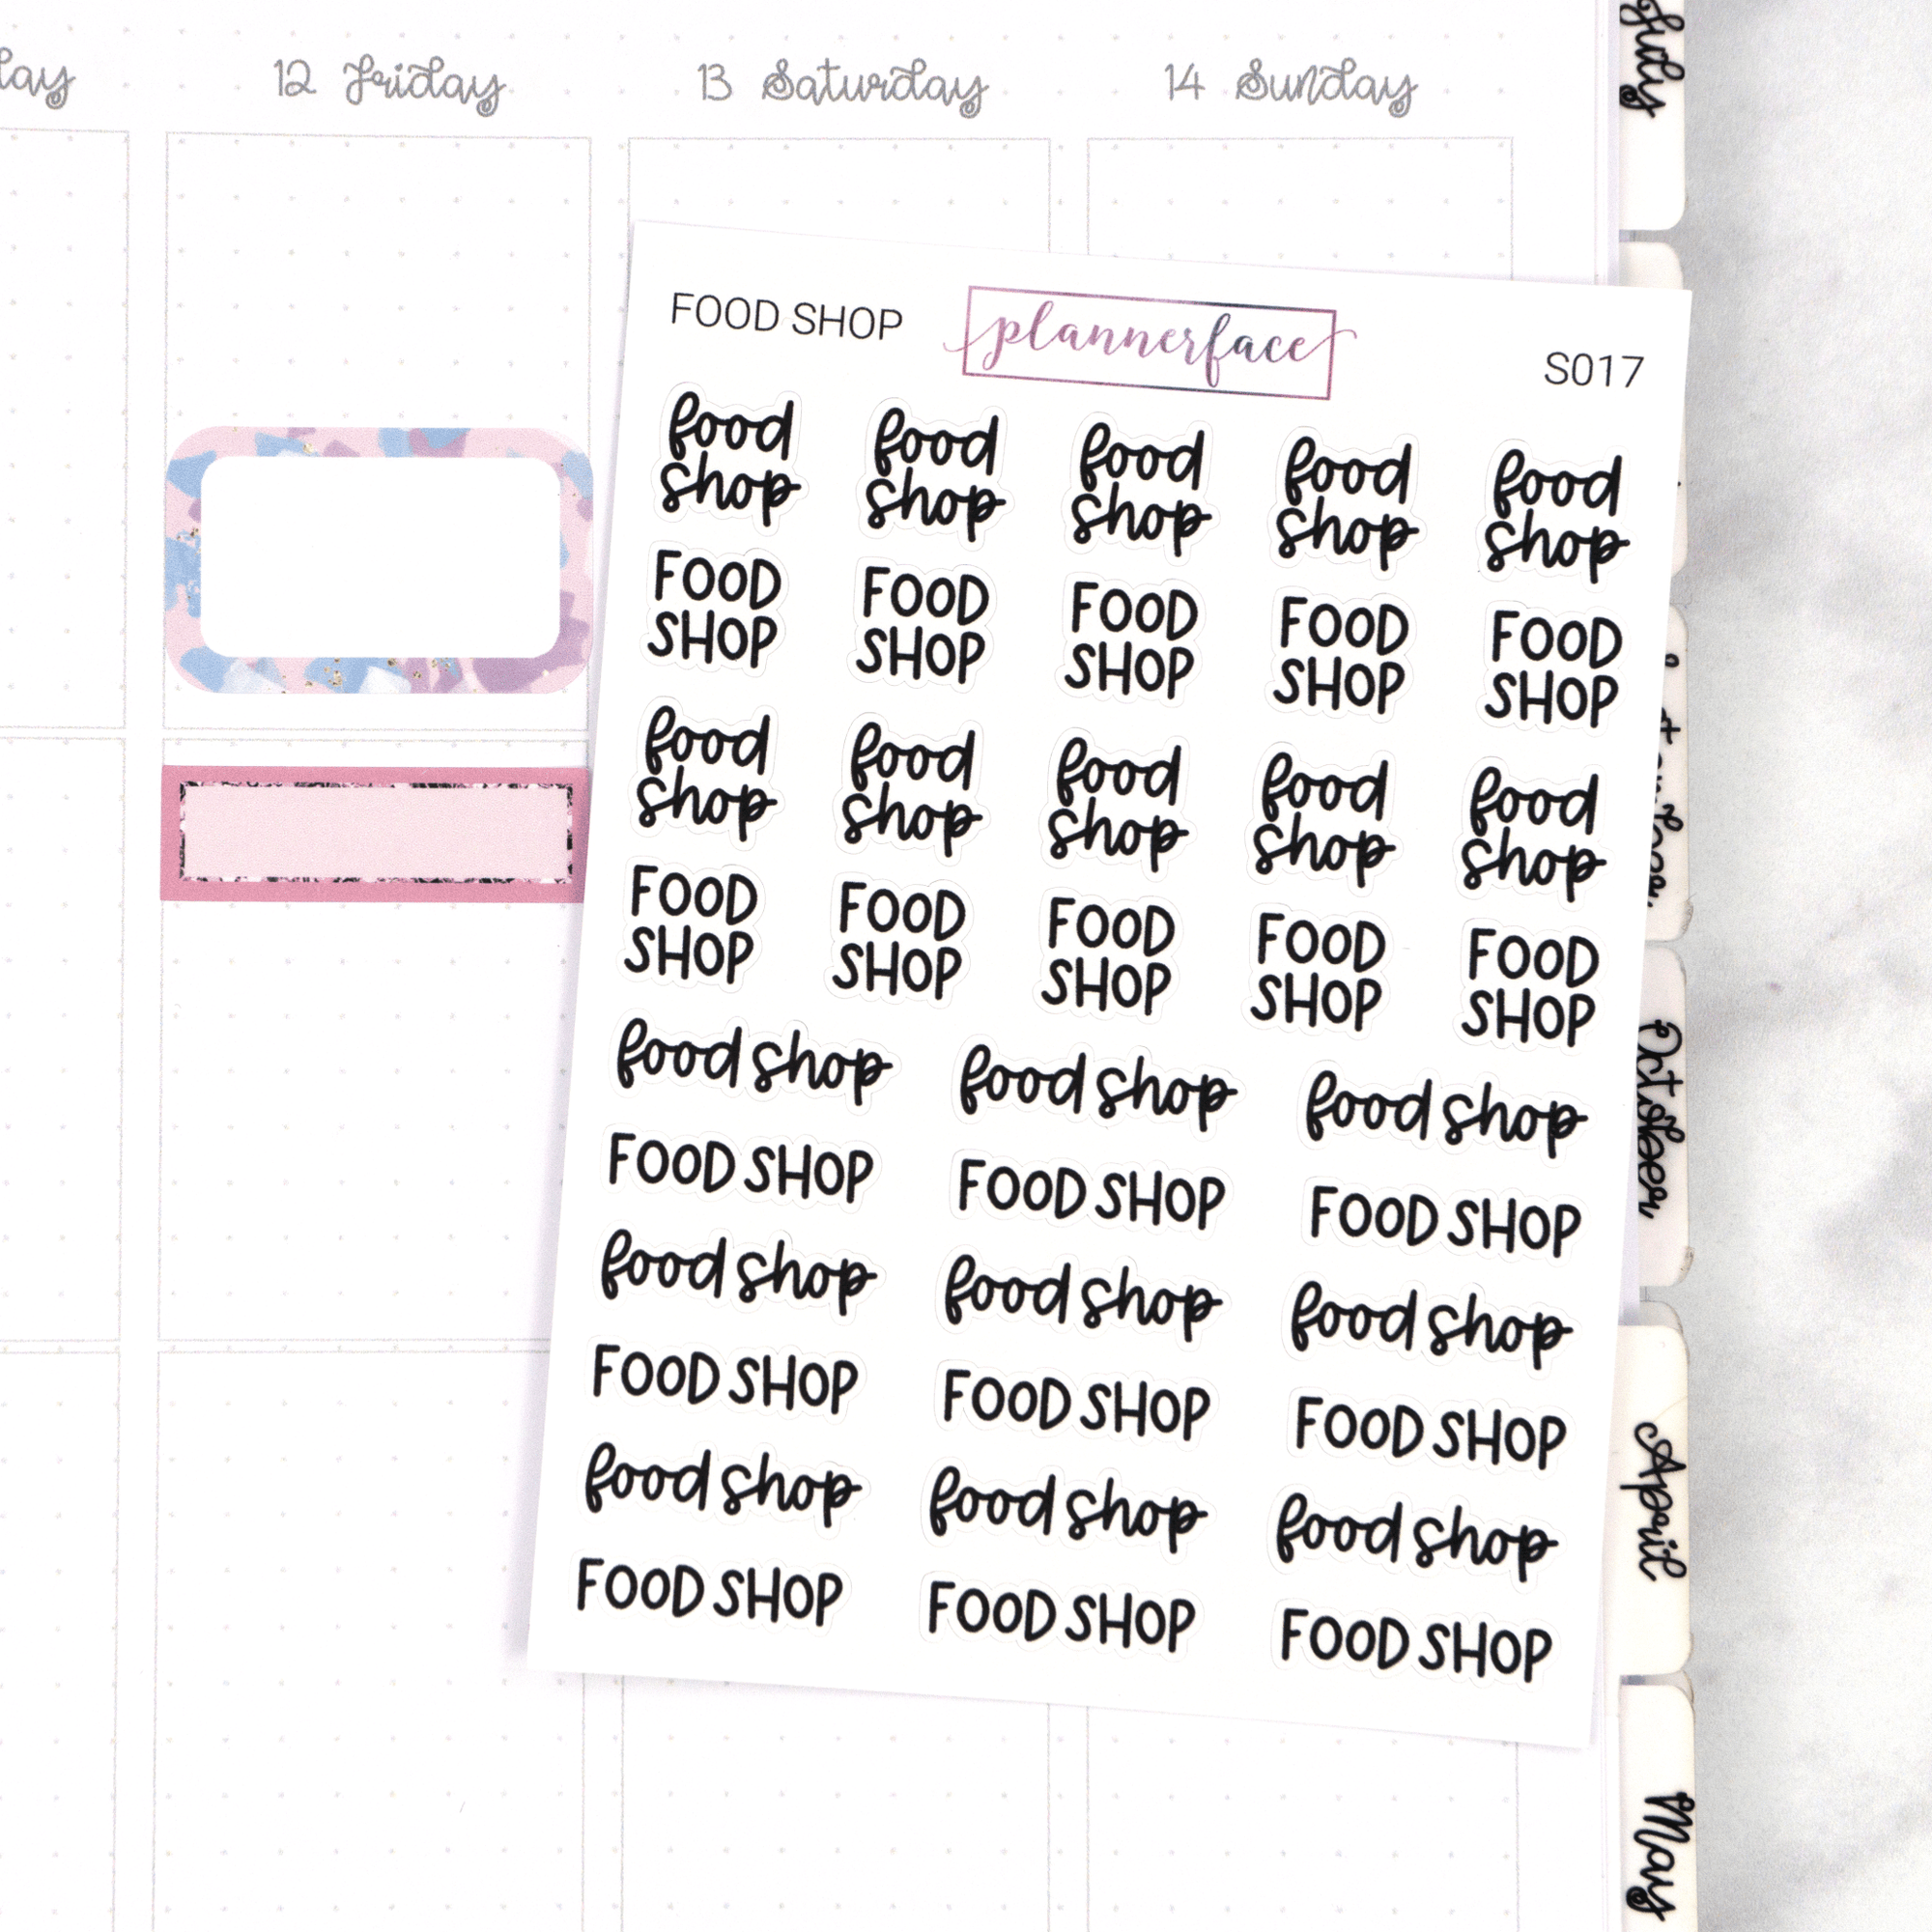 12 Friday 13 Saturday 14 Sunday
July
FOOD SHOP plannerface S017
food food food food food
shop shop shop shop shop
FOOD FOOD FOOD FOOD FOOD
SHOP SHOP SHOP SHOP SHOP
food food food food food
shop shop shop shop shop
FOOD FOOD FOOD FOOD FOOD
SHOP SHOP SHOP SHOP SHOP
food shop food shop food shop
FOOD SHOP FOOD SHOP FOOD SHOP
food shop food shop food shop
FOOD SHOP FOOD SHOP FOOD SHOP
food shop food shop food shop
FOOD SHOP FOOD SHOP FOOD SHOP
October
April
May